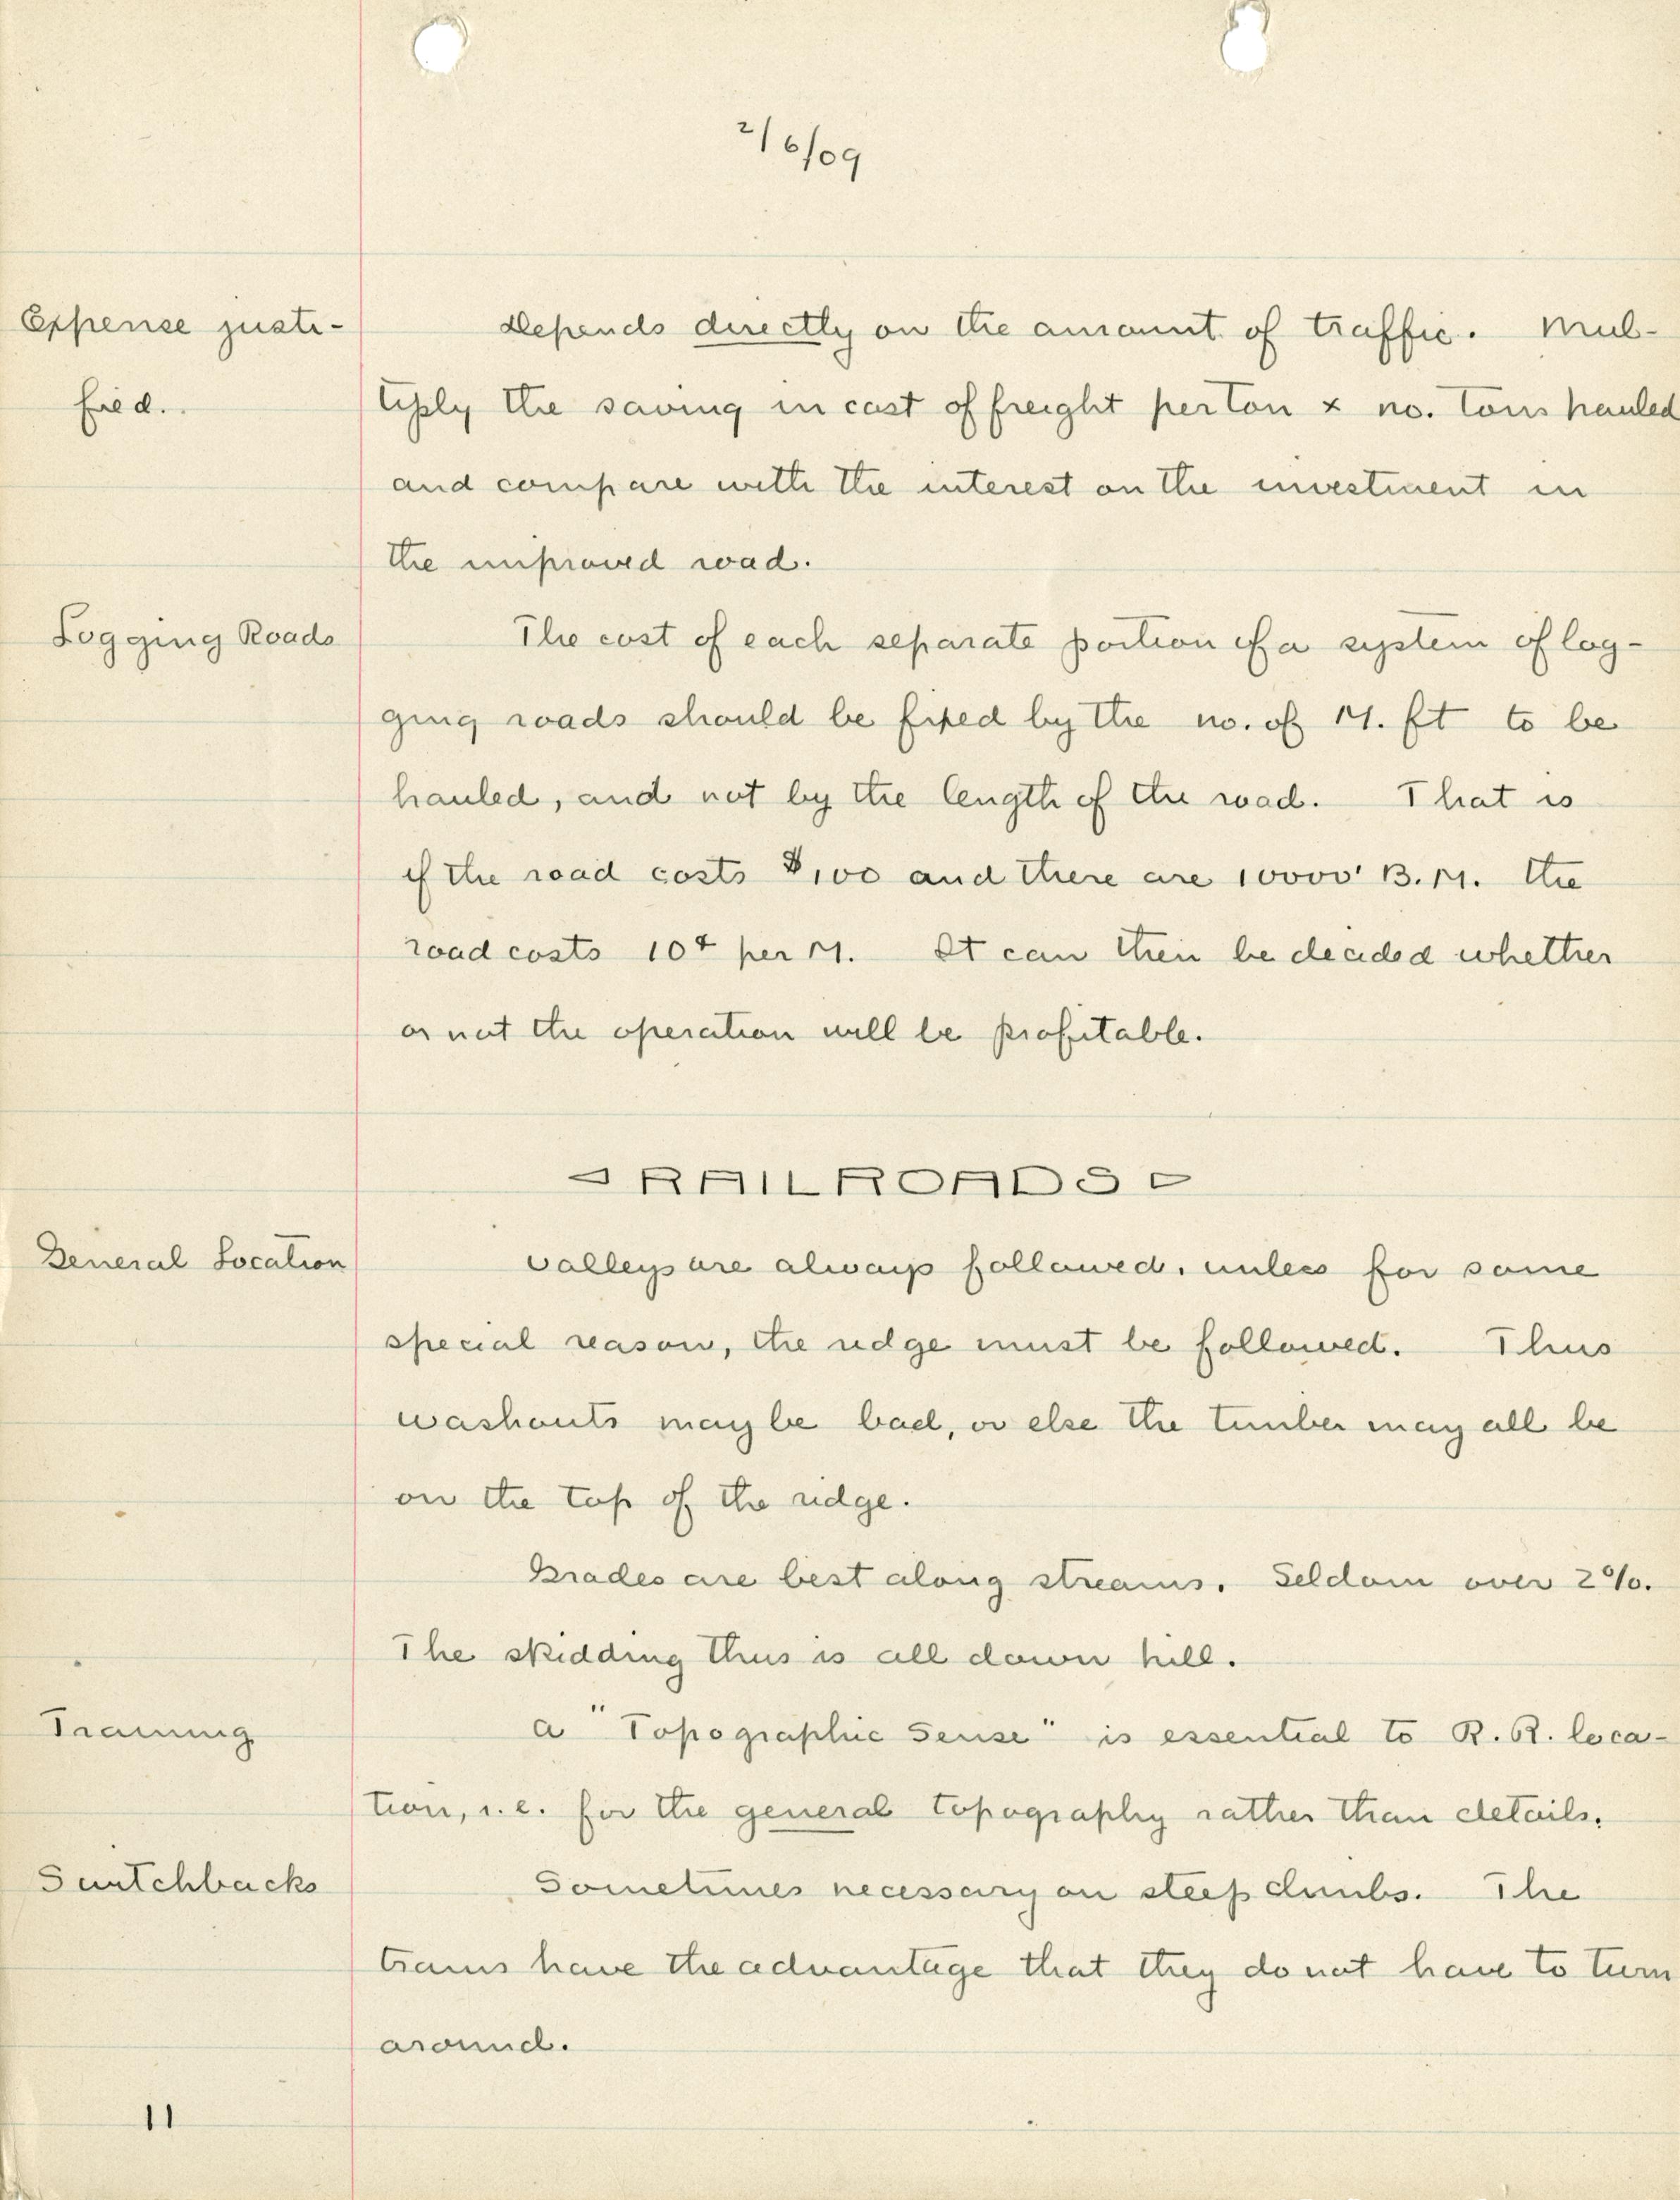 2/6/09
Expense justi-
fied.
Depends directly on the amount of traffic. Mul-
tiply the saving in cost of freight per ton x no. tons hauled
and compare with the interest on the investment in
the improved road.
Logging Roads
The cost of each separate portion of a system of log-
ging roads should be fixed by the no. of M. ft to be
hauled, and not by the length of the road. That is
if the road costs $100 and there are 10000' B.M. the
road costs 10¢ per M. It can then be decided whether
or not the operation will be profitable.
RAILROADS
General Location
Valleys are always followed, unless for some
special reason, the ridge must be followed. Thus
washouts may be bad, or else the timber may all be
on the top of the ridge.
Grades are best along streams. Seldom over 2%.
The skidding thus is all down hill.
Training
A "Topographic Sense" is essential to R.R. loca-
tion, i.e. for the general topography rather than details.
Switchbacks
Sometimes necessary on steep climbs. The
trains have the advantage that they do not have to turn
around.
11